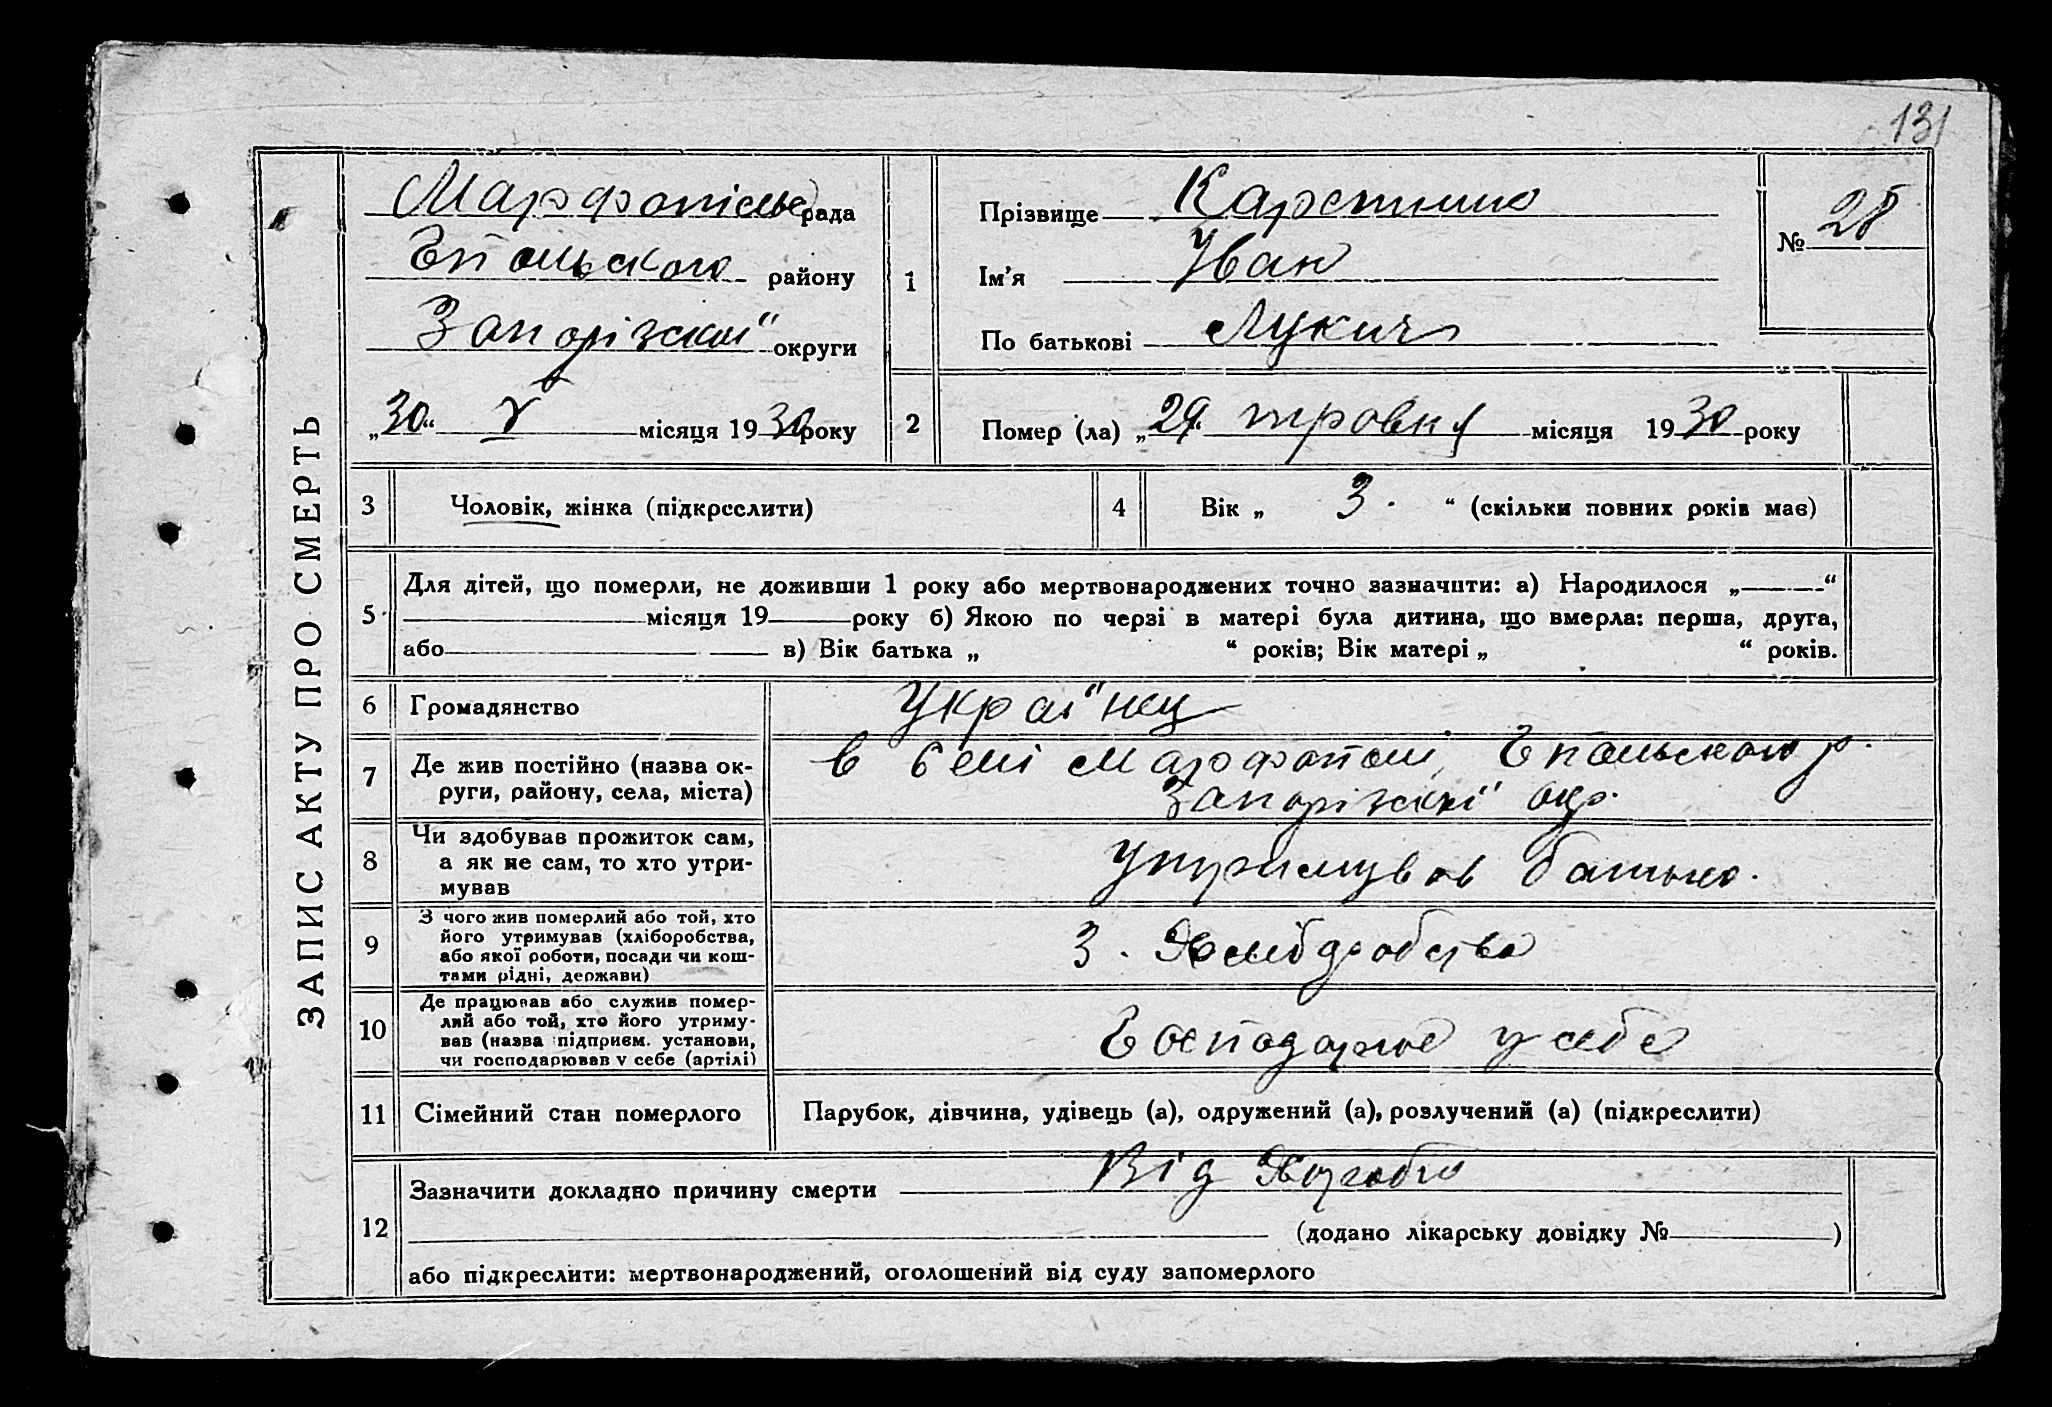 131
ЗАПИС АКТУ ПРО СМЕРТЬ
Марфопільс рада
Гпольского району
Запорізскої округи
„30“ V місяця 1930 року
1
Прізвище
Ім'я Иван
По батькові Лукич
№ 28
2 Помер (ла) „29“ тровня місяця 1930 року
3 Чоловік, жінка (підкреслити)
4 Вік „ 3. “ (скільки повних років має)
5 Для дітей, що померли, не доживши 1 року або мертвонароджених точно зазначити: а) Народилося „ “
місяця 19 року б) Якою по черзі в матері була дитина, що вмерла: перша, друга,
або в) Вік батька „ “ років; Вік матері „ “ років.
6 Громадянство Українец
7 Де жив постійно (назва ок-
руги, району, села, міста)
в селі Марфополі, Гпольского р.
Запорізскі окр.
8 Чи здобував прожиток сам,
а як не сам, то хто утри-
мував
утримував батько.
9 З чого жив померлий або той, хто
його утримував (хліборобства,
або якої роботи, посади чи кош-
тами рідні, держави)
З. Хліборобства
10 Де працював або служив помер-
лий або той, хто його утриму-
вав (назва підприєм. установи,
чи господарював у себе (артілі)
Господарює у себе
11 Сімейний стан померлого Парубок, дівчина, удівець (а), одружений (а), розлучений (а) (підкреслити)
12 Зазначити докладно причину смерти Від
(додано лікарську довідку № )
або підкреслити: мертвонароджений, оголошений від суду запомерлого